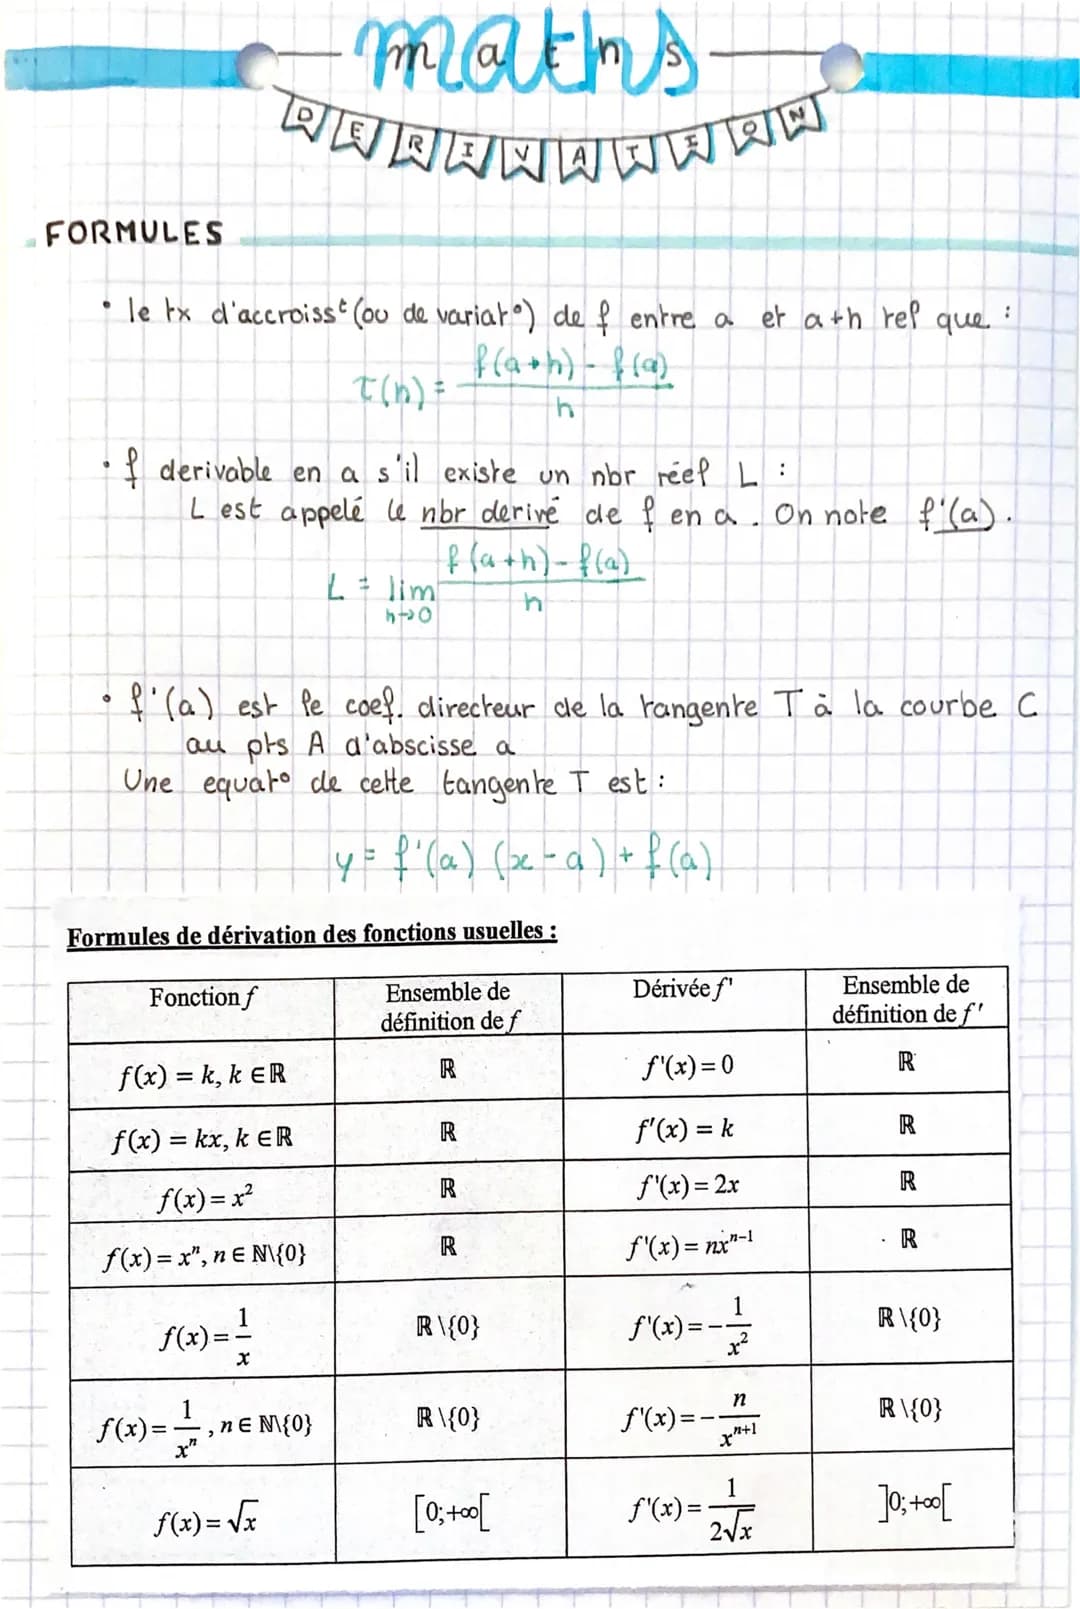 maths
DERIVATION
FORMULES
• le tx d'accroissᵗ (ou de variatº) de f entre a et a+h tel que :
τ(h) = \frac{f(a+h) - f(a)}{h}
• f derivable en a s'il existe un nbr réel L :
L est appelé le nbr derivé de f en a. On note f'(a).
L = lim_{h→0} \frac{f(a+h) - f(a)}{h}
• f'(a) est le coef. directeur de la tangente T à la courbe C
au pts A d'abscisse a
Une equatº de cette tangente T est :
y = f'(a) (x - a) + f(a)
Formules de dérivation des fonctions usuelles :
Fonction f | Ensemble de définition de f | Dérivée f' | Ensemble de définition de f'
f(x) = k, k ∈ ℝ | ℝ | f'(x) = 0 | ℝ
f(x) = kx, k ∈ ℝ | ℝ | f'(x) = k | ℝ
f(x) = x² | ℝ | f'(x) = 2x | ℝ
f(x) = xⁿ, n ∈ ℕ\{0} | ℝ | f'(x) = nxⁿ⁻¹ | ℝ
f(x) = \frac{1}{x} | ℝ\{0} | f'(x) = -\frac{1}{x²} | ℝ\{0}
f(x) = \frac{1}{xⁿ}, n ∈ ℕ\{0} | ℝ\{0} | f'(x) = -\frac{n}{xⁿ⁺¹} | ℝ\{0}
f(x) = √x | [0;+∞[ | f'(x) = \frac{1}{2√x} | ]0;+∞[